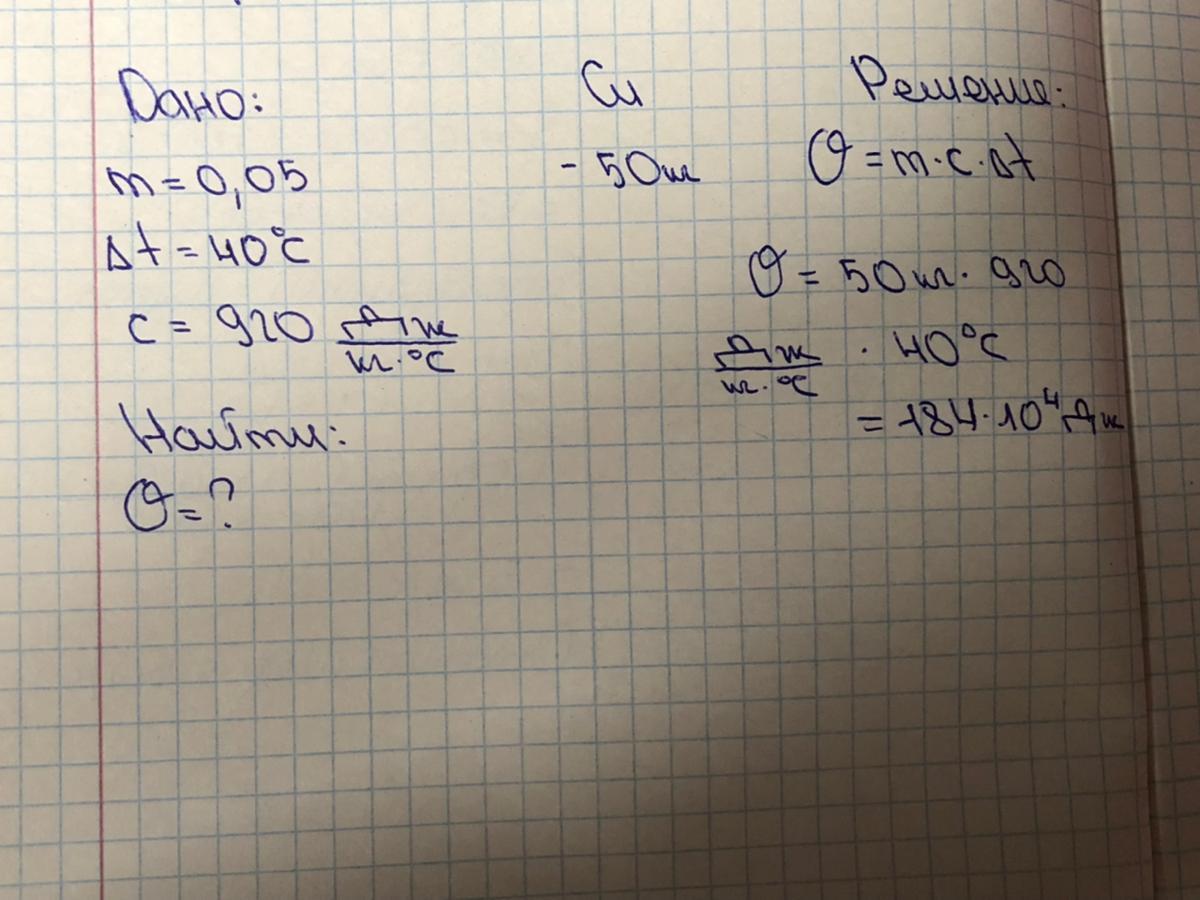 Дано:
m = 0,05
Δt = 40°C
c = 920 Дж/кг·°C
Найти:
Q = ?
Си
- 50кг
Решение:
Q = m·c·Δt
Q = 50кг · 920
Дж/кг·°C · 40°C
= 184·10⁴Дж